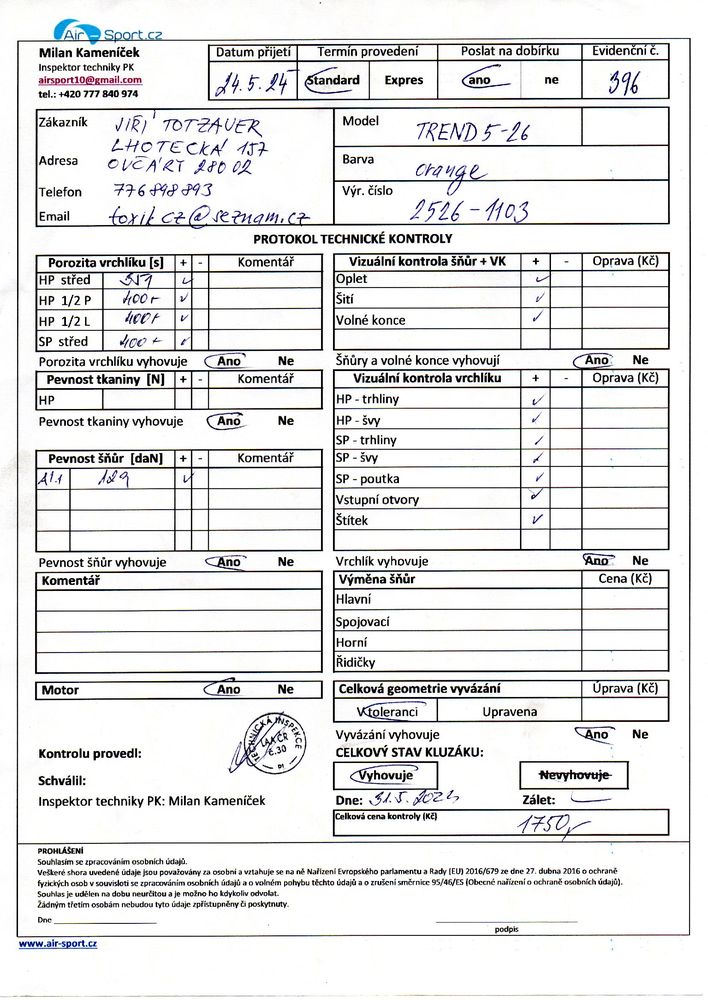 Air-Sport.cz
Milan Kameníček
Inspektor techniky PK
airsport10@gmail.com
tel.: +420 777 840 974
Datum přijetí Termín provedení Poslat na dobírku Evidenční č.
24.5.24 Standard Expres ano ne 396
Zákazník JIŘÍ TOTZAUER
LHOTECKÁ 157
Adresa OVČÁRY 28002
Telefon 776898893
Email toxik.cz@seznam.cz
Model TREND 5-26
Barva orange
Výr. číslo 2526-1103
PROTOKOL TECHNICKÉ KONTROLY
Porozita vrchlíku [s] + - Komentář
HP střed 351 ✓
HP 1/2 P 400+ ✓
HP 1/2 L 400+ ✓
SP střed 400+ ✓
Porozita vrchlíku vyhovuje Ano Ne
Pevnost tkaniny [N] + - Komentář
HP
Pevnost tkaniny vyhovuje Ano Ne
Pevnost šňůr [daN] + - Komentář
A1.1 129 ✓
Pevnost šňůr vyhovuje Ano Ne
Komentář
Motor Ano Ne
Vizuální kontrola šňůr + VK + - Oprava (Kč)
Oplet ✓
Šití ✓
Volné konce ✓
Šňůry a volné konce vyhovují Ano Ne
Vizuální kontrola vrchlíku + - Oprava (Kč)
HP - trhliny ✓
HP - švy ✓
SP - trhliny ✓
SP - švy ✓
SP - poutka ✓
Vstupní otvory ✓
Štítek ✓
Vrchlík vyhovuje Ano Ne
Výměna šňůr Cena (Kč)
Hlavní
Spojovací
Horní
Řidičky
Celková geometrie vyvázání Úprava (Kč)
V toleranci Upravena
Vyvázání vyhovuje Ano Ne
Kontrolu provedl:
Schválil:
Inspektor techniky PK: Milan Kameníček
TECHNICKÁ INSPEKCE
LAA ČR
č.30
CELKOVÝ STAV KLUZÁKU:
Vyhovuje Nevyhovuje
Dne: 31.5.2024 Zálet:
Celková cena kontroly (Kč) 1750,-
PROHLÁŠENÍ
Souhlasím se zpracováním osobních údajů.
Veškeré shora uvedené údaje jsou považovány za osobní a vztahuje se na ně Nařízení Evropského parlamentu a Rady (EU) 2016/679 ze dne 27. dubna 2016 o ochraně
fyzických osob v souvislosti se zpracováním osobních údajů a o volném pohybu těchto údajů a o zrušení směrnice 95/46/ES (Obecné nařízení o ochraně osobních údajů).
Souhlas je udělen na dobu neurčitou a je možno ho kdykoliv odvolat.
Žádným třetím osobám nebudou tyto údaje zpřístupněny či poskytnuty.
Dne
podpis
www.air-sport.cz